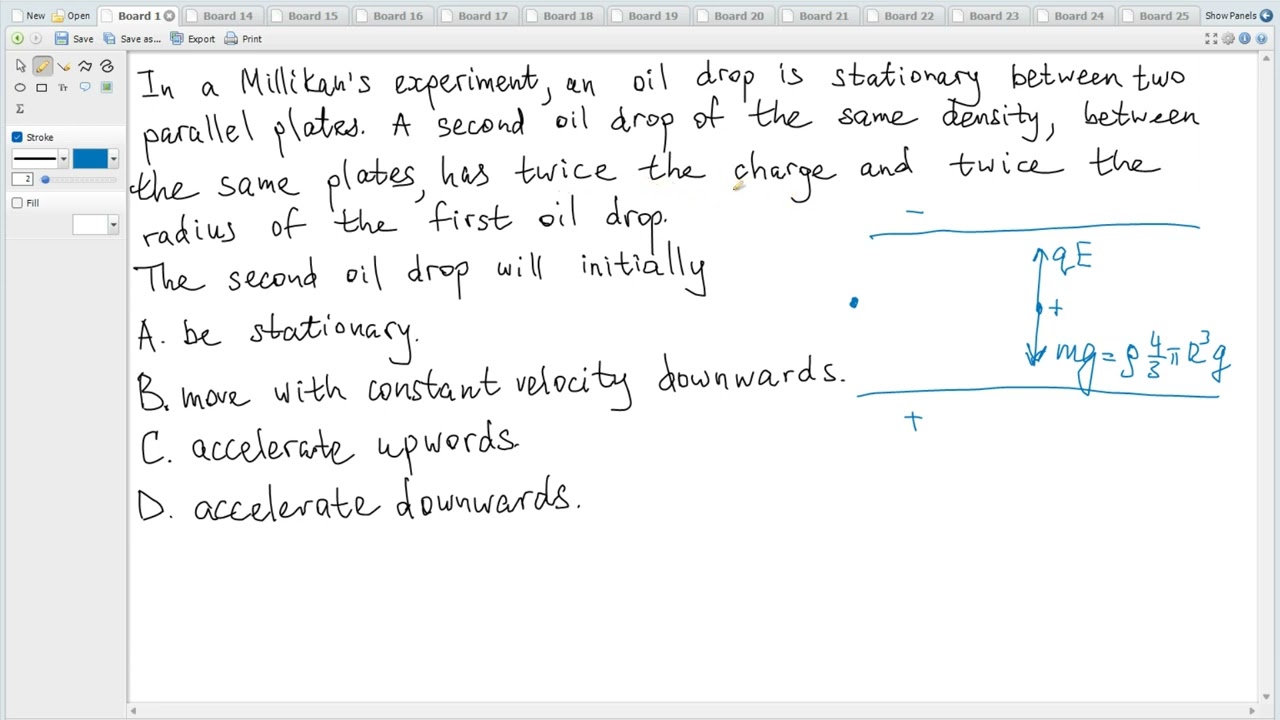 New Open Board 1 Board 14 Board 15 Board 16 Board 17 Board 18 Board 19 Board 20 Board 21 Board 22 Board 23 Board 24 Board 25 Show Panels
Save Save as... Export Print
Stroke
2
Fill
In a Millikan's experiment, an oil drop is stationary between two
parallel plates. A second oil drop of the same density, between
the same plates, has twice the charge and twice the
radius of the first oil drop.
The second oil drop will initially
A. be stationary.
B. move with constant velocity downwards.
C. accelerate upwords.
D. accelerate downwards.
−
qE
+
mg = ρ 4/3 π R³ g
+